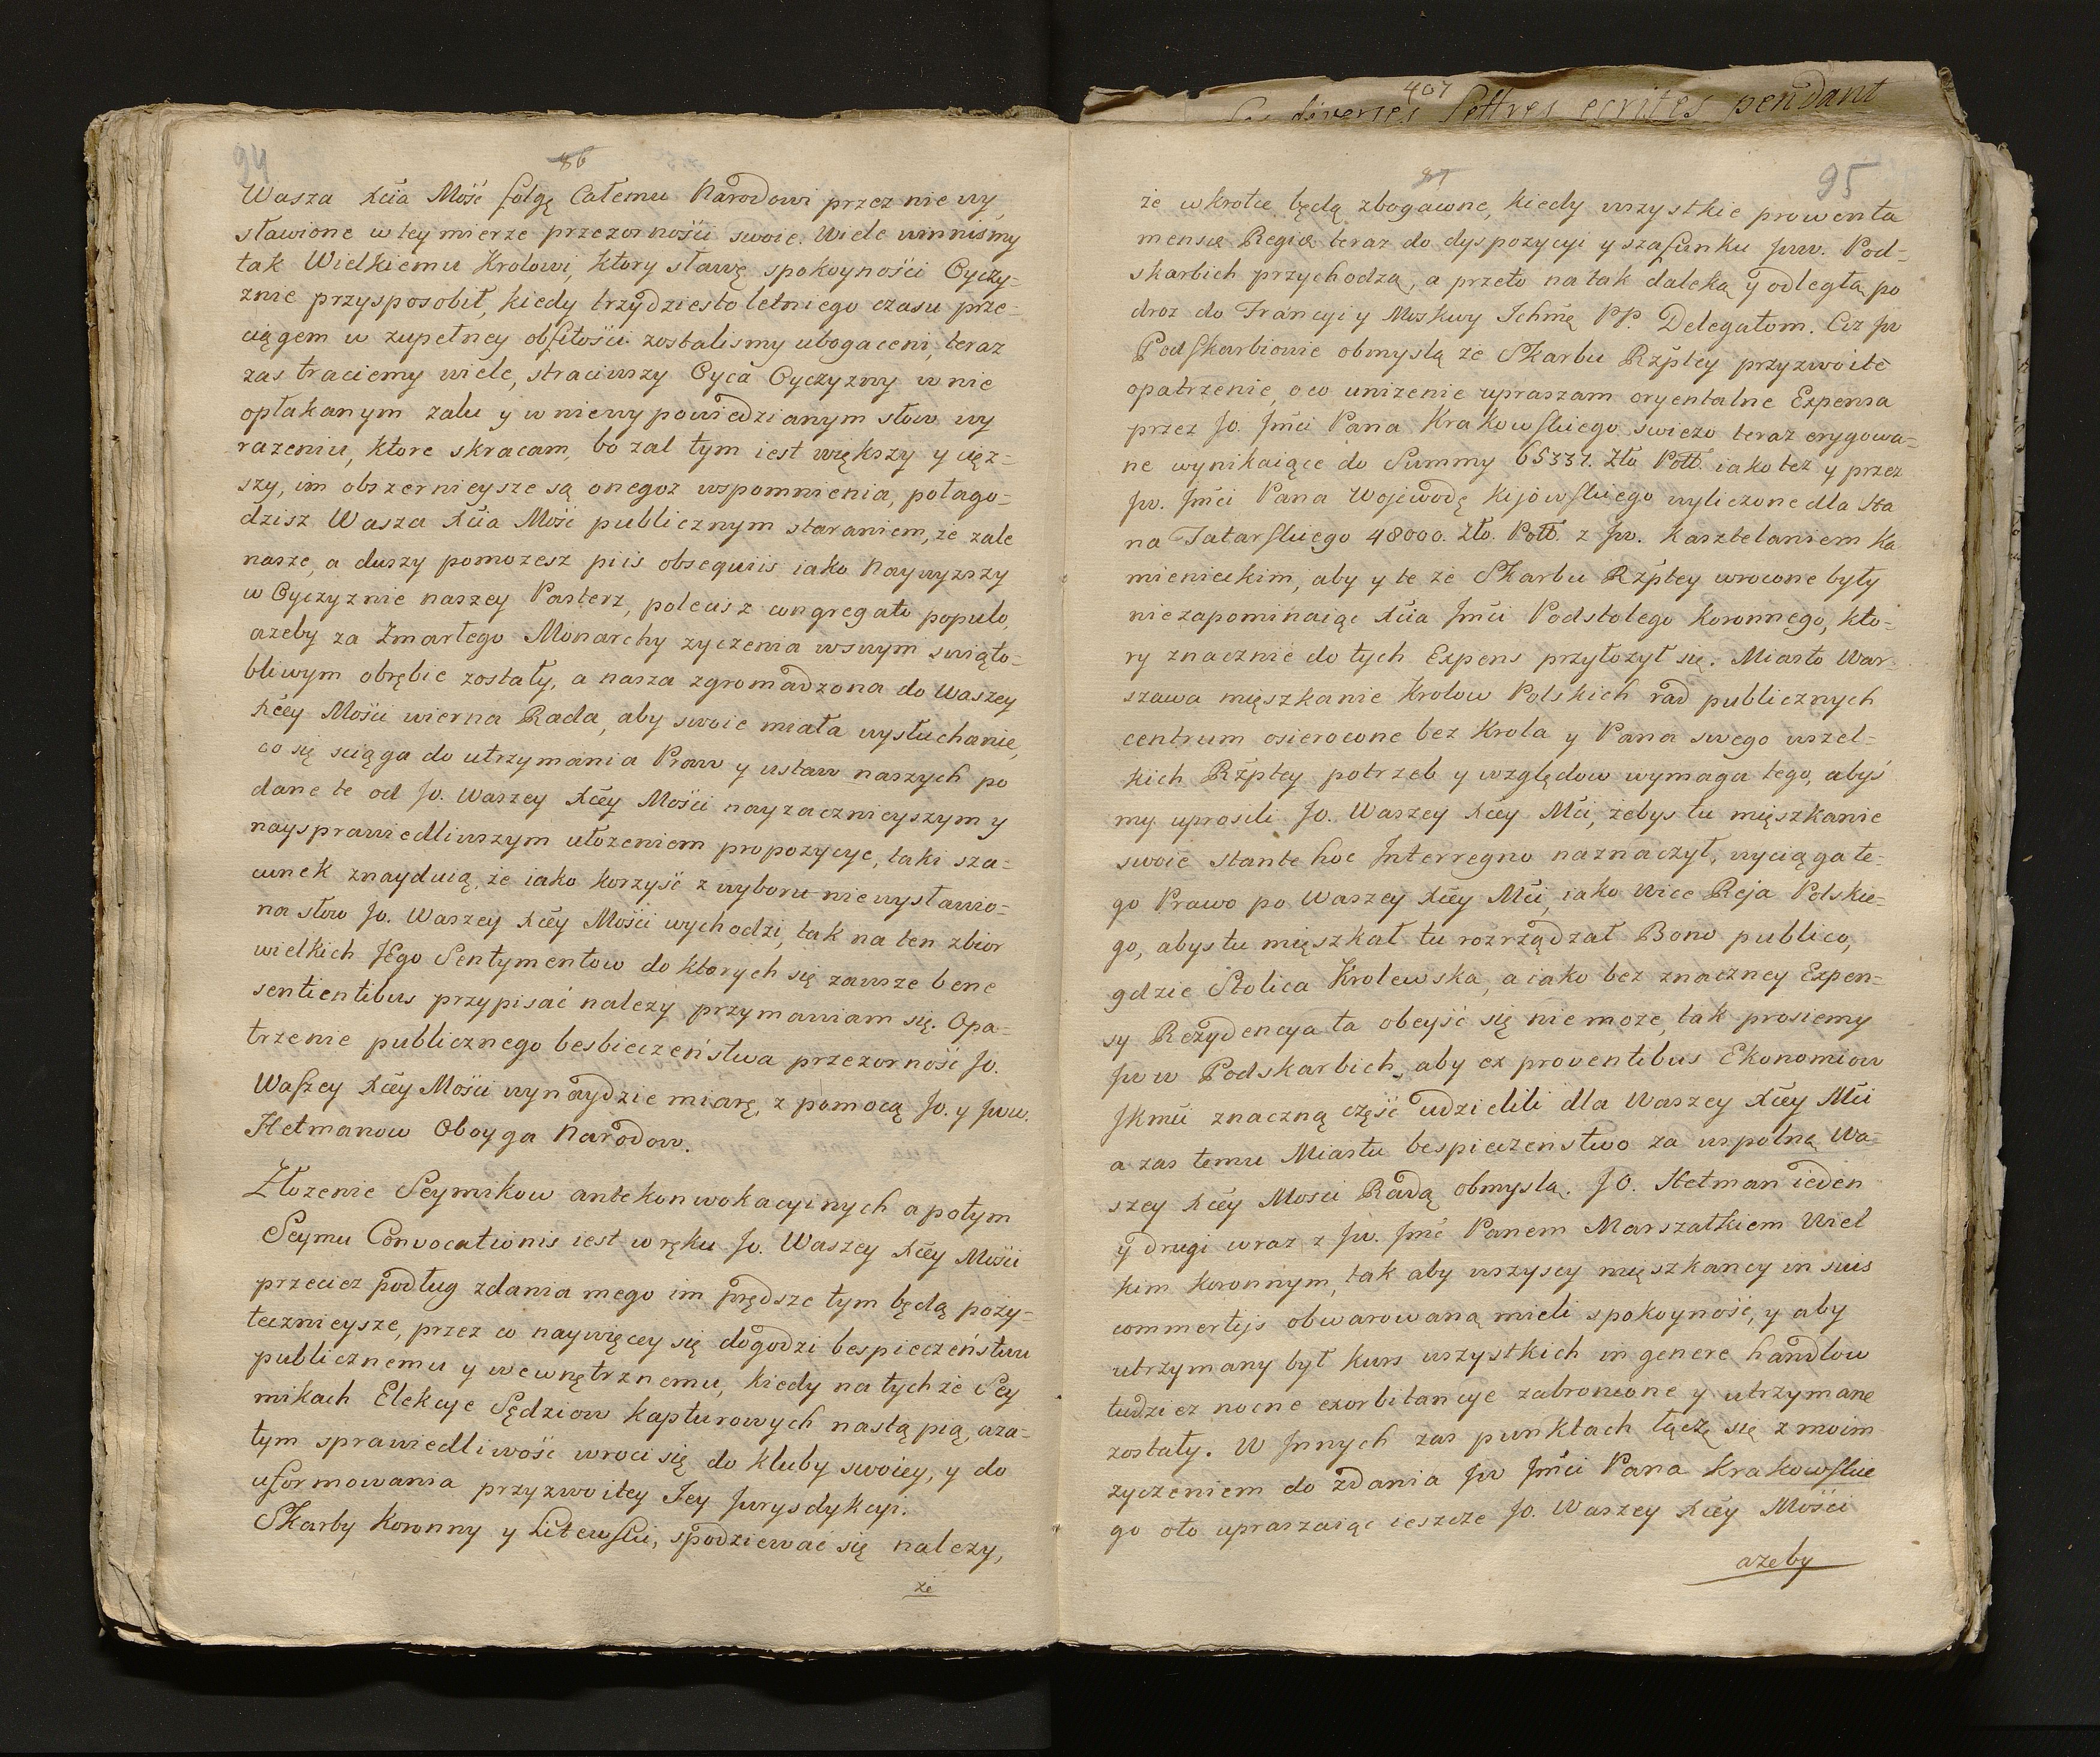 94
86
Wasza Xcia Mość folgę Całemu Narodowi przez nie wy,
sławione w tey mierze przezorności swoie. Wiele winnismy
tak Wielkiemu Krolowi, ktory sławę spokoyności Oyczy-
znie przysposobił, kiedy trzydziesto letniego czasu prze-
ciągem w zupełney obfitości zostalismy ubogaceni, teraz
zas traciemy wiele, straciwszy Oyca Oyczyzny w nie
opłakanym zalu y w niewypowiedzianym słow wy
razeniu, ktore skracam, bo zal tym iest większy y cięz-
szy, im obszernieysze są onegoz wspomnienia, połago-
dzisz Wasza Xcia Mość publicznym staraniem, że zale
nasze, a duszy pomozesz piis obsequiis iako Naywyzszy
w Oyczyznie naszey Pasterz, polecisz congregato populo,
azeby za Zmarłego Monarchy zyczenia wswym swiąto-
bliwym obrębie zostały, a nasza zgromadzona do Waszey
Xcey Mości wierna Rada, aby swoie miała wysłuchanie,
co się sciąga do utrzymania Praw y ustaw naszych po
dane te od Jo. Waszey Xcey Mości nayzacznieyszym y
naysprawiedliwszym ułozeniem propozycye, taki sza-
cunek znayduią, że iako korzyść z wyboru niewysławio-
na słow Jo. Waszey Xcey Mości wychodzi, tak na ten zbior
wielkich Jego Sentymentow do ktorych się zawsze bene
sentientibus przypisać nalezy przymawiam się. Opa-
trzenie publicznego besbieczeństwa przezorność Jo.
Waszey Xcey Mości wynaydzie miarę, z pomocą Jo. y Jww.
Hetmanow Oboyga Narodow.
Złozenie Seymikow antekonwokacyinych a potym
Seymu Convocationis iest w ręku Jo. Waszey Xcey Mości
przeciez podług zdania mego im prędsze tym będą pozy-
tecznieysze, przez co naywięcey się dogodzi bespieczeństwu
publicznemu y wewnętrznemu, kiedy na tychże Sey
mikach Elekcye Sędziow kapturowych nastąpią, aza-
tym sprawiedliwość wroci się do kluby swoiey, y do
uformowania przyzwoitey Jey Jurysdykcyi.
Skarby Koronny y Litewski, spodziewać się nalezy,
że
407
diverses lettres ecrites pendant
87
95
że wkrotce będą zbogacone, kiedy wszystkie prowenta
mensæ Regiæ teraz do dyspozycyi y szafunku Jww. Pod-
skarbich przychodzą, a przeto na tak daleką y odległą po
droz do Francyi y Moskwy Ichmę PP. Delegatom. Ciz Jw
Podskarbiowie obmyslą ze Skarbu Rzptey przyzwoite
opatrzenie, o co unizenie upraszam oryentalne Expensa
przez Jo. Jmci Pana Krakowskiego swiezo teraz erygowa-
ne wynikaiące do Summy 65337. Zło Poll. iako tez y przez
Jw. Jmci Pana Wojewodę Kijowskiego wyliczone dla Ha
na Tatarskiego 48000. Zło. Poll. z Jw. Kasztelaniem Ka
mienieckim, aby y te ze Skarbu Rzptey wrocone były
niezapominaiąc Xcia Jmci Podstolego Koronnego, kto-
ry znacznie do tych Expens przyłozył się. Miasto War-
szawa mięszkanie Krolow Polskich rad publicznych
centrum osierocone bez Krola y Pana swego wszel-
kich Rzptey potrzeb y względow wymaga tego, abyś
my uprosili Jo. Waszey Xcey Mci, zebys tu mięszkanie
swoie stante hoc Interregno naznaczył, wyciąga te-
go Prawo po Waszey Xcey Mci, iako Vice Reja Polskie-
go, abys tu mięszkał tu rozrządzał Bono publico,
gdzie Stolica Krolewska, a iako bez znaczney Expen-
sy Rezydencya ta obeyść się niemoze, tak prosiemy
Jw w Podskarbich, aby ex proventibus Ekonomiow
JKmci znaczną część udzielili dla Waszey Xcey Mci
a zas temu Miastu bespieczeństwo za wspolną Wa-
szey Xcey Mosci Radą obmyslą. JO. Hetman ieden
y drugi wraz z Jw. Jmć Panem Marszałkiem Wiel
kim Koronnym, tak aby wszyscy mięszkancy in suis
commertijs obwarowaną mieli spokoyność, y aby
utrzymany był kurs wszystkich in genere handlow
tudziez nocne exorbitancye zabronione y utrzymane
zostały. W Innych zas punktach łączę się z moim
zyczeniem do zdania Jw Jmci Pana Krakowskie
go oto upraszaiąc ieszcze Jo. Waszey Xcey Mości
azeby